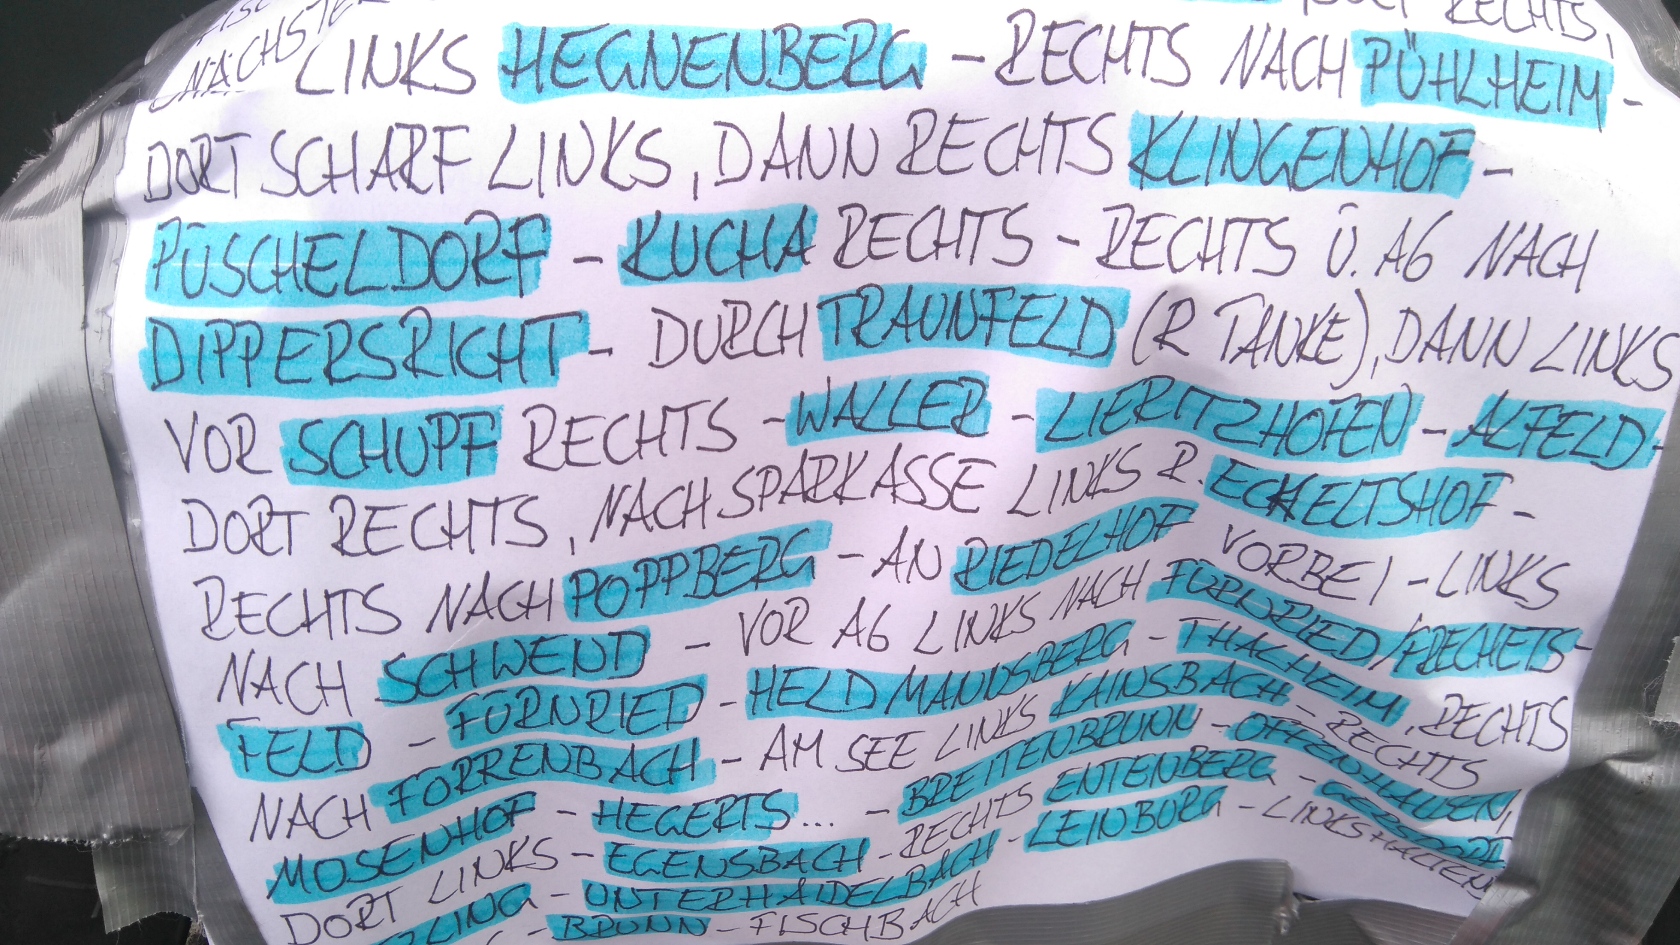 NÄCHSTE
DORT RECHTS,
LINKS HEGNENBERG – RECHTS NACH PÜHLHEIM –
DORT SCHARF LINKS, DANN RECHTS KLINGENHOF –
PÜSCHELDORF – KUCHA RECHTS – RECHTS Ü. A6 NACH
DIPPERSRICHT – DURCH TRAUNFELD (R TANKE), DANN LINKS
VOR SCHUPF RECHTS – WALLER – LIERITZHOFEN – ALFELD –
DORT RECHTS, NACH SPARKASSE LINKS R. ECKELTSHOF –
RECHTS NACH POPPBERG – AN RIEDELHOF VORBEI – LINKS
NACH SCHWEND – VOR A6 LINKS NACH FÜRNRIED/FRECHETS-
FELD – FÜRNRIED – HELDMANNSBERG – THALHEIM, RECHTS
NACH FÖRRENBACH – AM SEE LINKS KAINSBACH – RECHTS
MOSENHOF – HEGERTS... – BREITENBRUNN – OFFENHAUSEN,
DORT LINKS – EGENSBACH – RECHTS ENTENBERG – GERSDORF
LING – UNTERHAIDELBACH – LEINBURG – LINKSHALTEN
– BRUNN – FISCHBACH